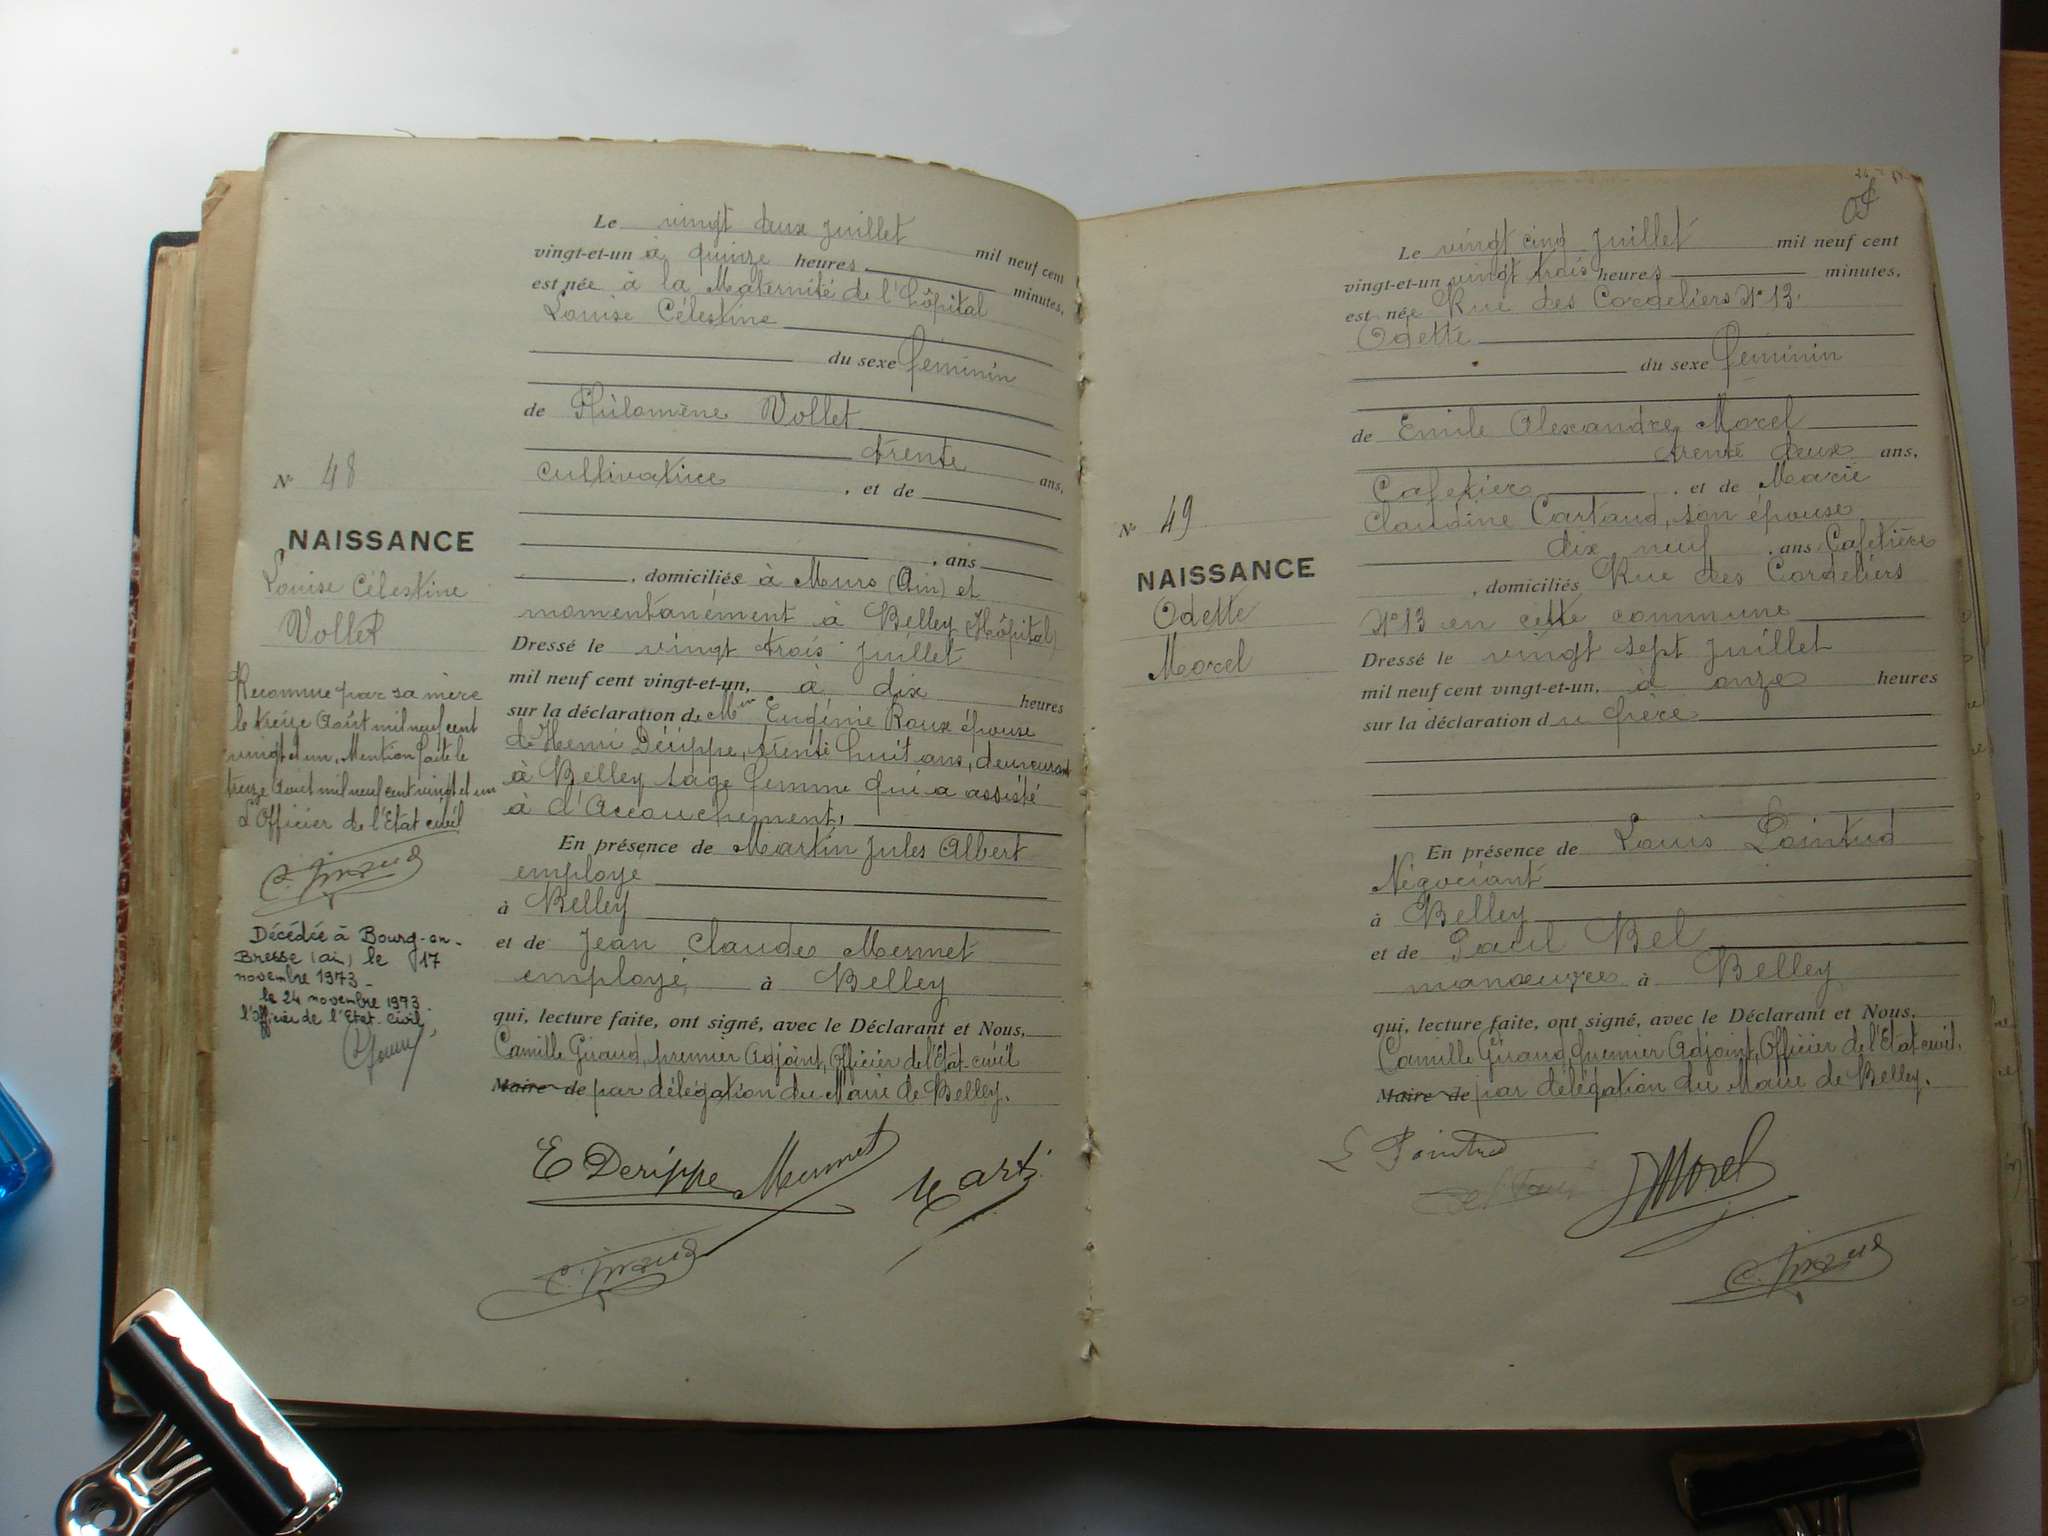 Le vingt deux juillet mil neuf cent
vingt-et-un à quinze heures minutes,
est née à la Maternité de l'hôpital
Louise Célestine
du sexe féminin
de Philomène Vollet
trente
cultivatrice ans, et de
, ans
, domiciliés à Murs (Ain) et
momentanément à Belley (Hôpital)
Dressé le vingt trois juillet
mil neuf cent vingt-et-un, à dix heures
sur la déclaration de Mme Eugénie Roux épouse
de Henri Dérippe, trente huit ans, demeurant
à Belley, sage femme qui a assisté
à d'Accouchement,
En présence de Martin Jules Albert
employé
à Belley
et de Jean Claude Mermet
employé, à Belley
qui, lecture faite, ont signé, avec le Déclarant et Nous,
Camille Giraud, premier Adjoint, Officier de l'Etat-civil
Maire de par délégation du Maire de Belley.
E Derippe Mermet
C. Giraud
N° 48
NAISSANCE
Louise Célestine
Vollet
Reconnue par sa mère
le treize Août mil neuf cent
vingt et un. Mention faite le
treize Août mil neuf cent vingt et un
L'Officier de l'Etat civil
C. Giraud
Décédée à Bourg-en-
Bresse (ain) le 17
novembre 1973-
le 24 novembre 1973
l'officier de l'Etat-civil,
Le vingt cinq juillet mil neuf cent
vingt-et-un vingt trois heures minutes,
est née Rue des Cordeliers N° 13.
Odette
du sexe féminin
de Emile Alexandre Morel
trente deux ans,
Cafetier , et de Marie
Claudine Cartaud, son épouse
dix neuf , ans Cafetière
, domiciliés Rue des Cordeliers
N° 13 en cette commune
Dressé le vingt sept juillet
mil neuf cent vingt-et-un, à onze heures
sur la déclaration du père
En présence de Louis Pointud
Négociant
à Belley
et de Paul Bel
manœuvre à Belley
qui, lecture faite, ont signé, avec le Déclarant et Nous,
Camille Giraud, premier Adjoint, Officier de l'Etat-civil,
Maire de par délégation du Maire de Belley.
L Pointud
Morel
C. Giraud
N° 49
NAISSANCE
Odette
Morel